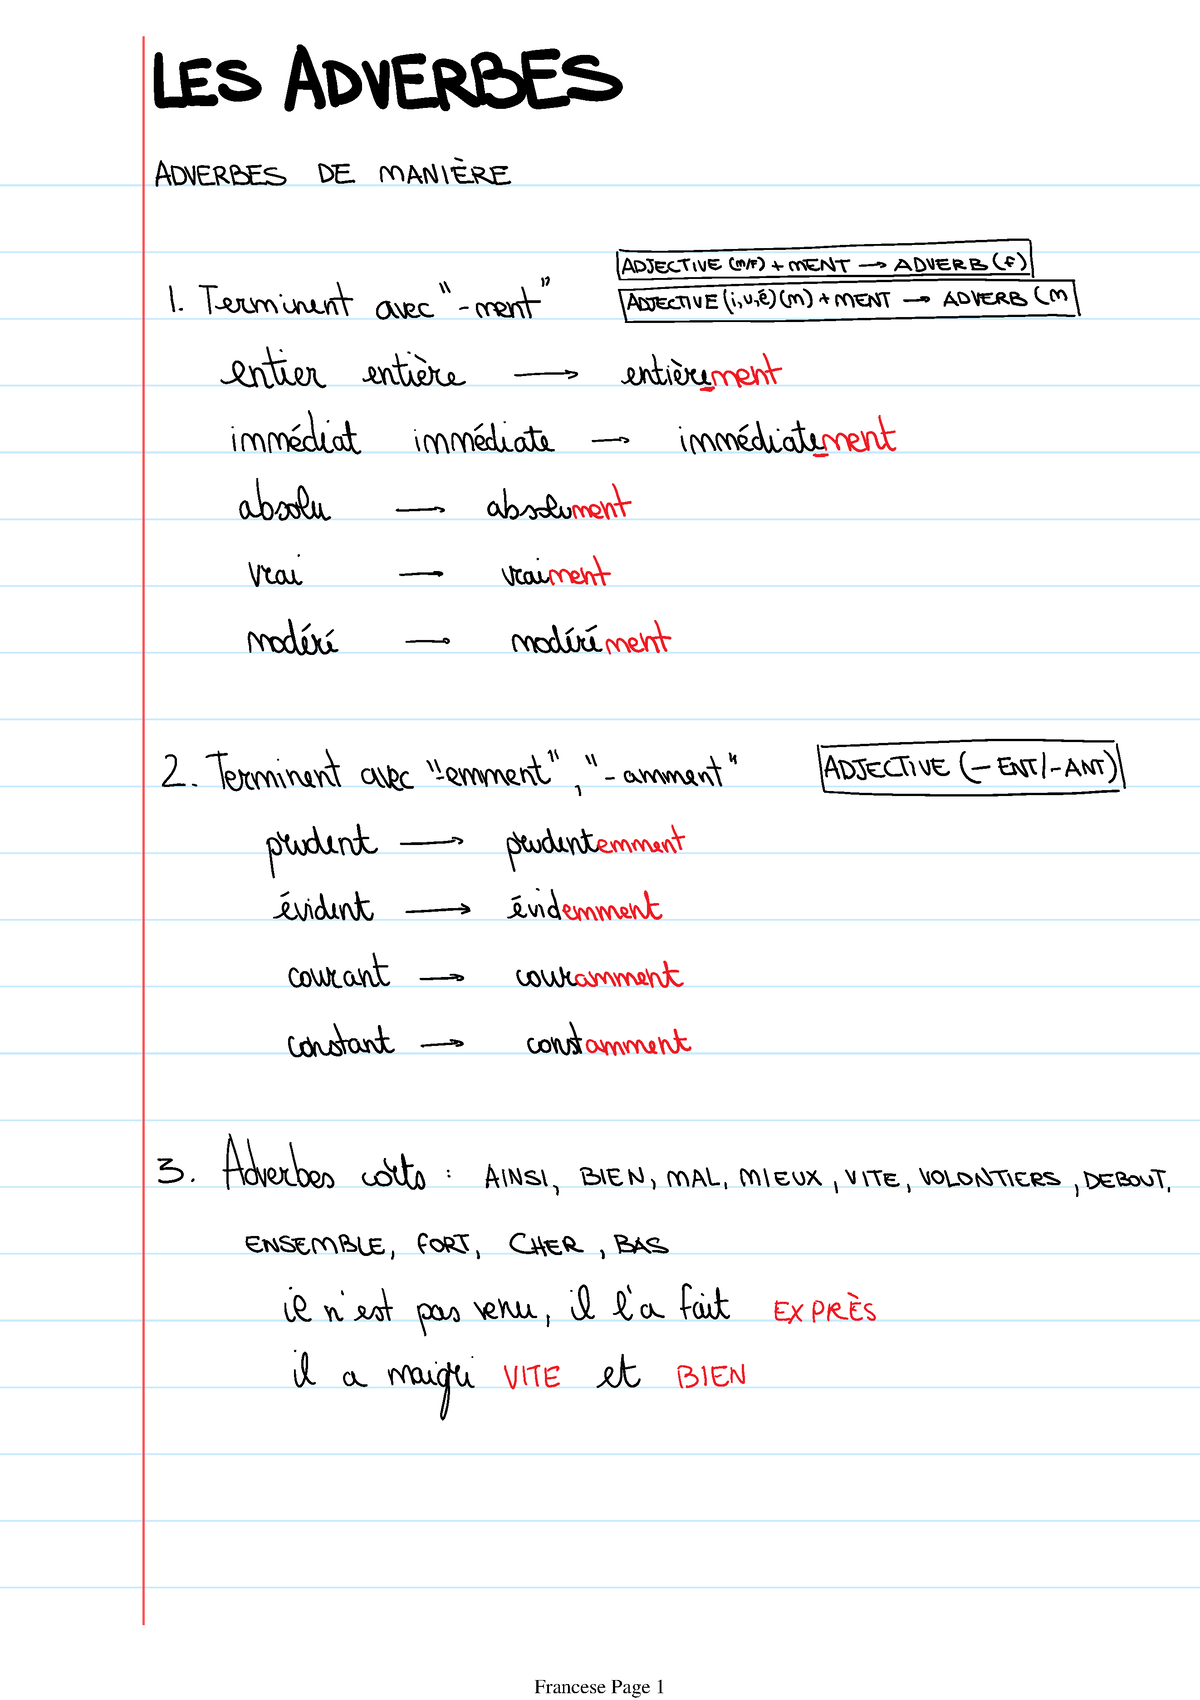 LES ADVERBES
ADVERBES DE MANIÈRE
ADJECTIVE (M/F) + MENT → ADVERB (F)
1. Terminent avec "-ment"
ADJECTIVE (i,u,é) (m) + MENT → ADVERB (M
entier entière → entièrement
immédiat immédiate → immédiatement
absolu → absolument
vrai → vraiment
modéré → modérément
2. Terminent avec "-emment", "-amment" ADJECTIVE (-ENT/-ANT)
prudent → prudentemment
évident → évidemment
courant → couramment
constant → constamment
3. Adverbes : AINSI, BIEN, MAL, MIEUX, VITE, VOLONTIERS, DEBOUT,
ENSEMBLE, FORT, CHER, BAS
il n'est pas venu, il l'a fait EXPRÈS
il a maigri VITE et BIEN
Francese Page 1